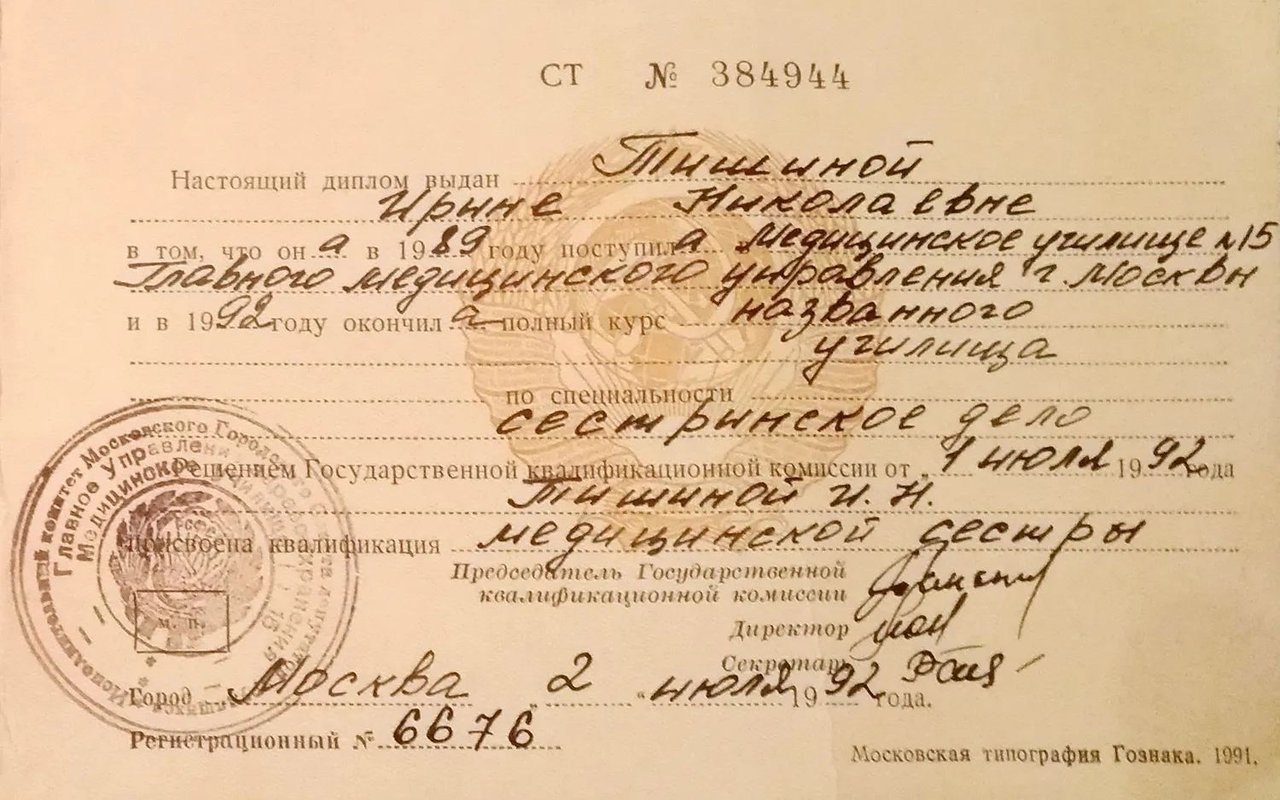 СТ № 384944
Настоящий диплом выдан Тишиной
Ирине Николаевне
в том, что он а в 1989 году поступил а Медицинское училище №15
Главного медицинского управления г. Москвы
и в 1992 году окончил а полный курс названного
училища
по специальности
сестринское дело
Решением Государственной квалификационной комиссии от 1 июля 1992 года
Тишиной И. Н.
присвоена квалификация медицинской сестры
Председатель Государственной
квалификационной комиссии
Директор
Секретарь
Город Москва 2 июля 1992 года.
Регистрационный № 6676
Московская типография Гознака. 1991.
Исполнительный комитет Московского Городского
Главное Управление
Медицинское училище
15
м. п.